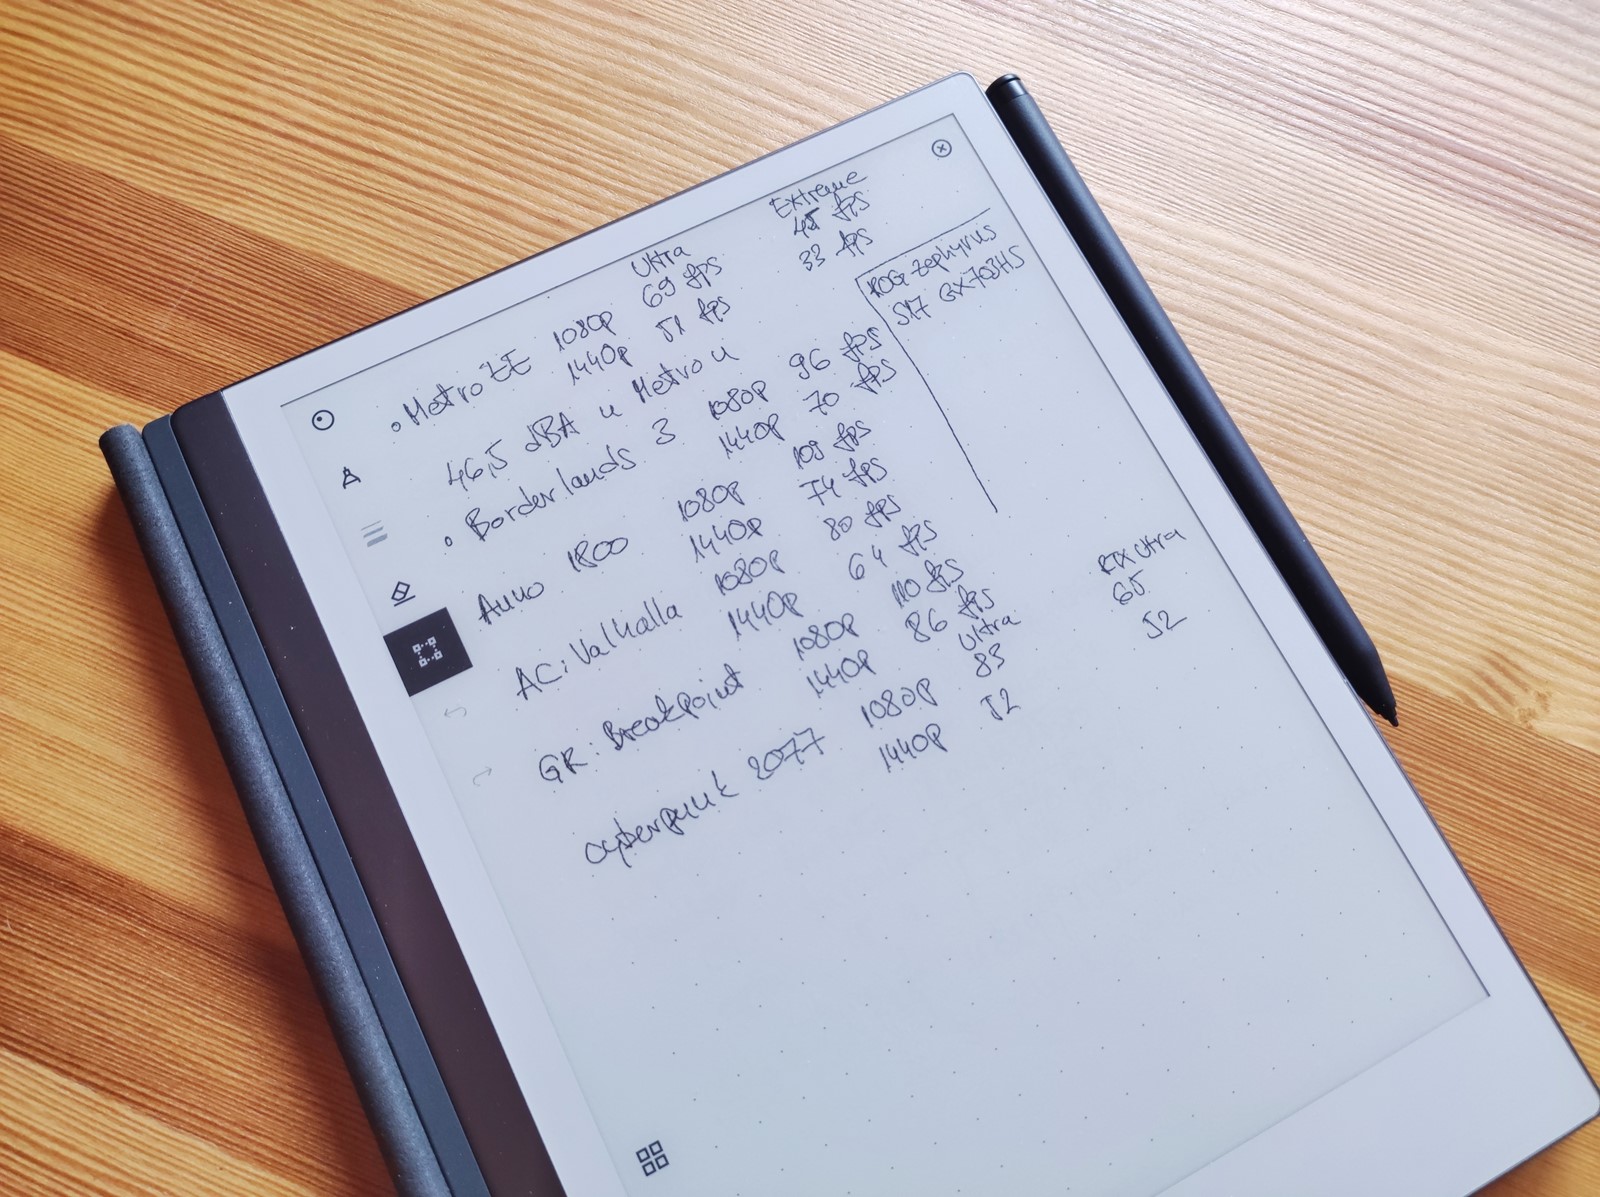 Ultra Extreme
• Metro EE 1080p 69 fps 45 fps
1440p 51 fps 33 fps
46,5 dBA u Metro u
• Borderlands 3 1080p 96 fps
1440p 70 fps
Anno 1800 1080p 109 fps
1440p 74 fps
AC: Valhalla 1080p 80 fps
1440p 64 fps
GR: Breakpoint 1080p 110 fps
1440p 86 fps
Ultra RTX Ultra
cyberpunk 2077 1080p 83 65
1440p 52 52
ROG Zephyrus
S17 GX703HS